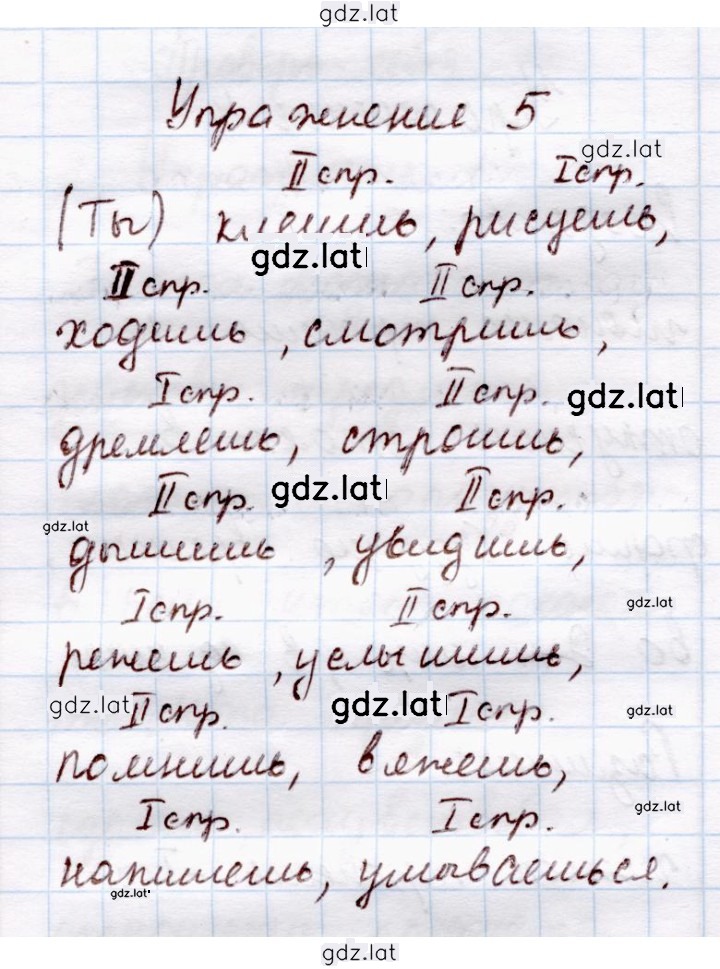 gdz.lat
Упражнение 5
gdz.lat
II спр. I спр.
(Ты) клеишь, рисуешь,
gdz.lat
II спр. II спр.
ходишь, смотришь,
I спр. II спр. gdz.lat
дремлешь, строишь,
II спр. gdz.lat II спр.
gdz.lat
дышишь, увидишь,
I спр. II спр. gdz.lat
режешь, услышишь,
gdz.lat II спр. gdz.lat I спр. gdz.lat
помнишь, вяжешь,
I спр. I спр. gdz.lat
напишешь, умываешься.
gdz.lat
gdz.lat